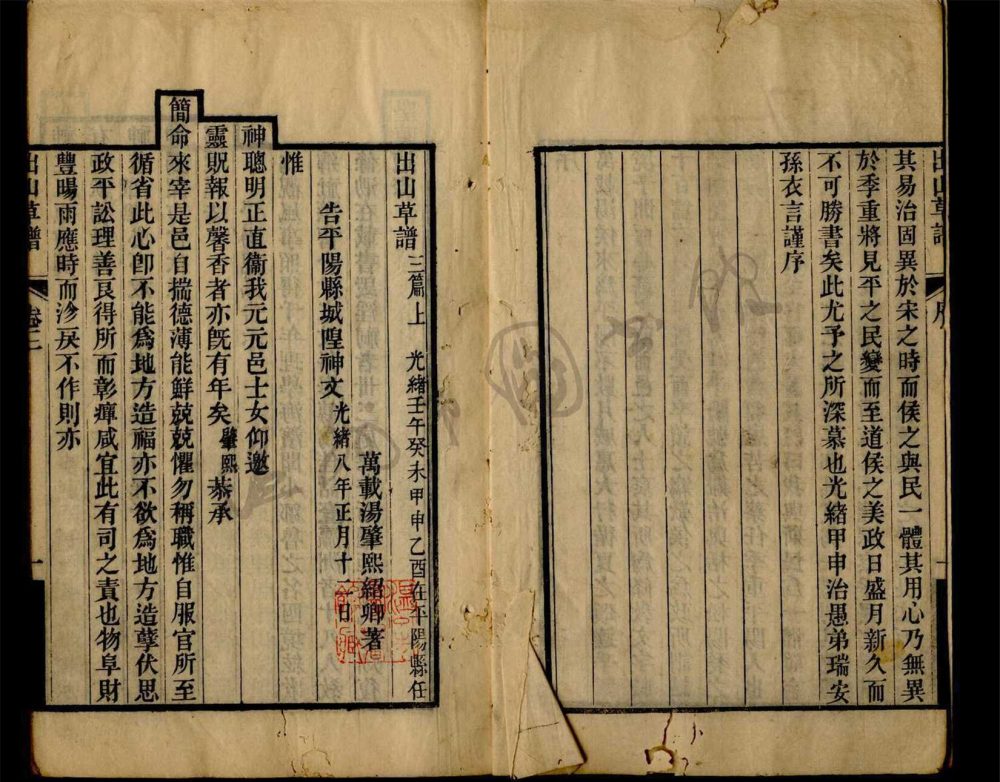 其易治固異於宋之時而侯之與民一體其用心乃無異
於季重將見平之民變而至道侯之美政日盛月新久而
不可勝書矣此尤予之所深慕也光緒甲申治愚弟瑞安
孫衣言謹序
出山草譜 三篇上 光緒壬午癸未甲申乙酉在平陽縣任
萬載湯肇熙紹卿著
告平陽縣城隍神文 光緒八年正月十二日
惟
神聰明正直衞我元元邑士女仰邀
靈貺報以馨香者亦既有年矣肇熙恭承
簡命來宰是邑自揣德薄能鮮兢兢懼勿稱職惟自服官所至
循省此心卽不能爲地方造福亦不欲爲地方造孽伏思
政平訟理善良得所而彰癉咸宜此有司之責也物阜財
豐暘雨應時而沴戾不作則亦
出山草譜 卷三 一